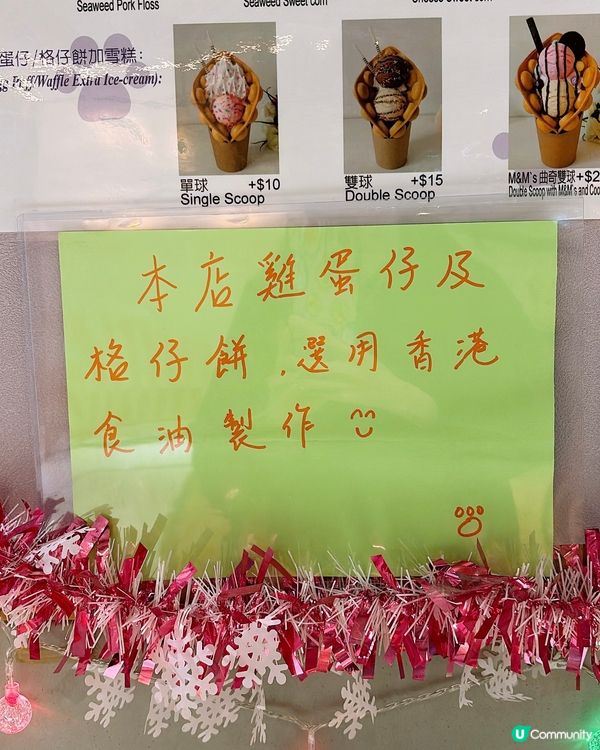 Seaweed Pork Floss
Seaweed Sweet corn
蛋仔/格仔餅加雪糕:
Puff/Waffle Extra Ice-cream):
單球 +$10
Single Scoop
雙球 +$15
Double Scoop
M&M`s 曲奇雙球+$2
Double Scoop with M&M's and Coo
本店雞蛋仔及
格仔餅，選用香港
食油製作
U Community